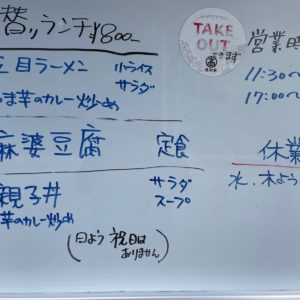 替りランチ ¥800
TAKE OUT
できます
営業時
五目ラーメン 小ライス
サラダ
11:30〜
ま芋のカレー炒め
17:00〜
麻婆豆腐 定食
休業
親子丼 サラダ
スープ
水.木よう
芋のカレー炒め
(日よう 祝日は
ありません)